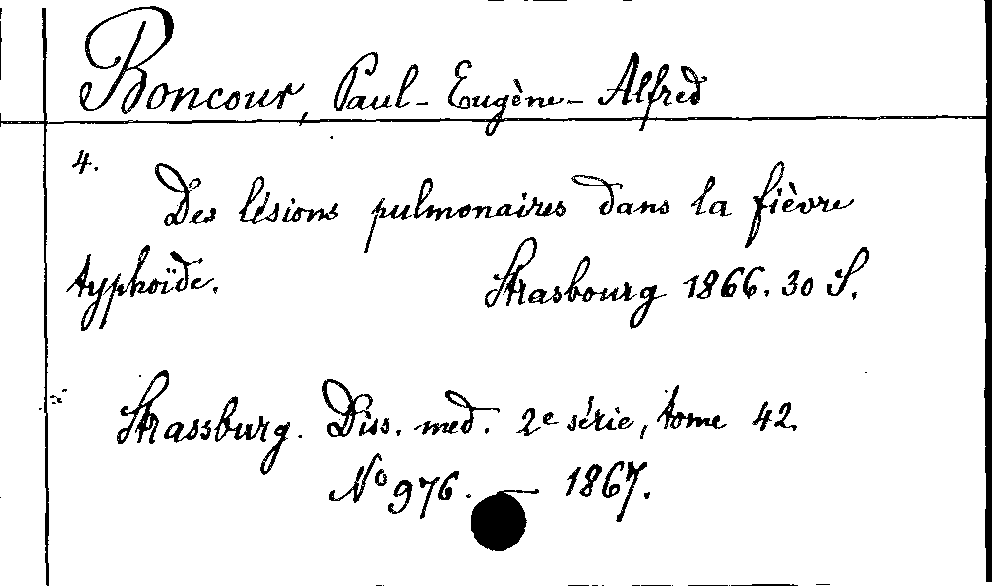 Boncour, Paul-Eugène-Alfred
4.
Des lésions pulmonaires dans la fièvre
typhoïde. Strasbourg 1866. 30 S.
Strassburg. Diss. med. 2e série, tome 42.
No 976. — 1867.